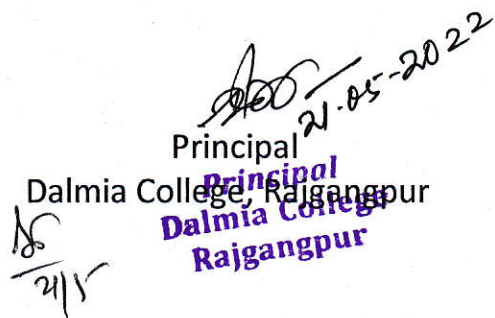 21-05-2022
Principal
Dalmia College, Rajgangpur
Principal
Dalmia College
Rajgangpur
21/5